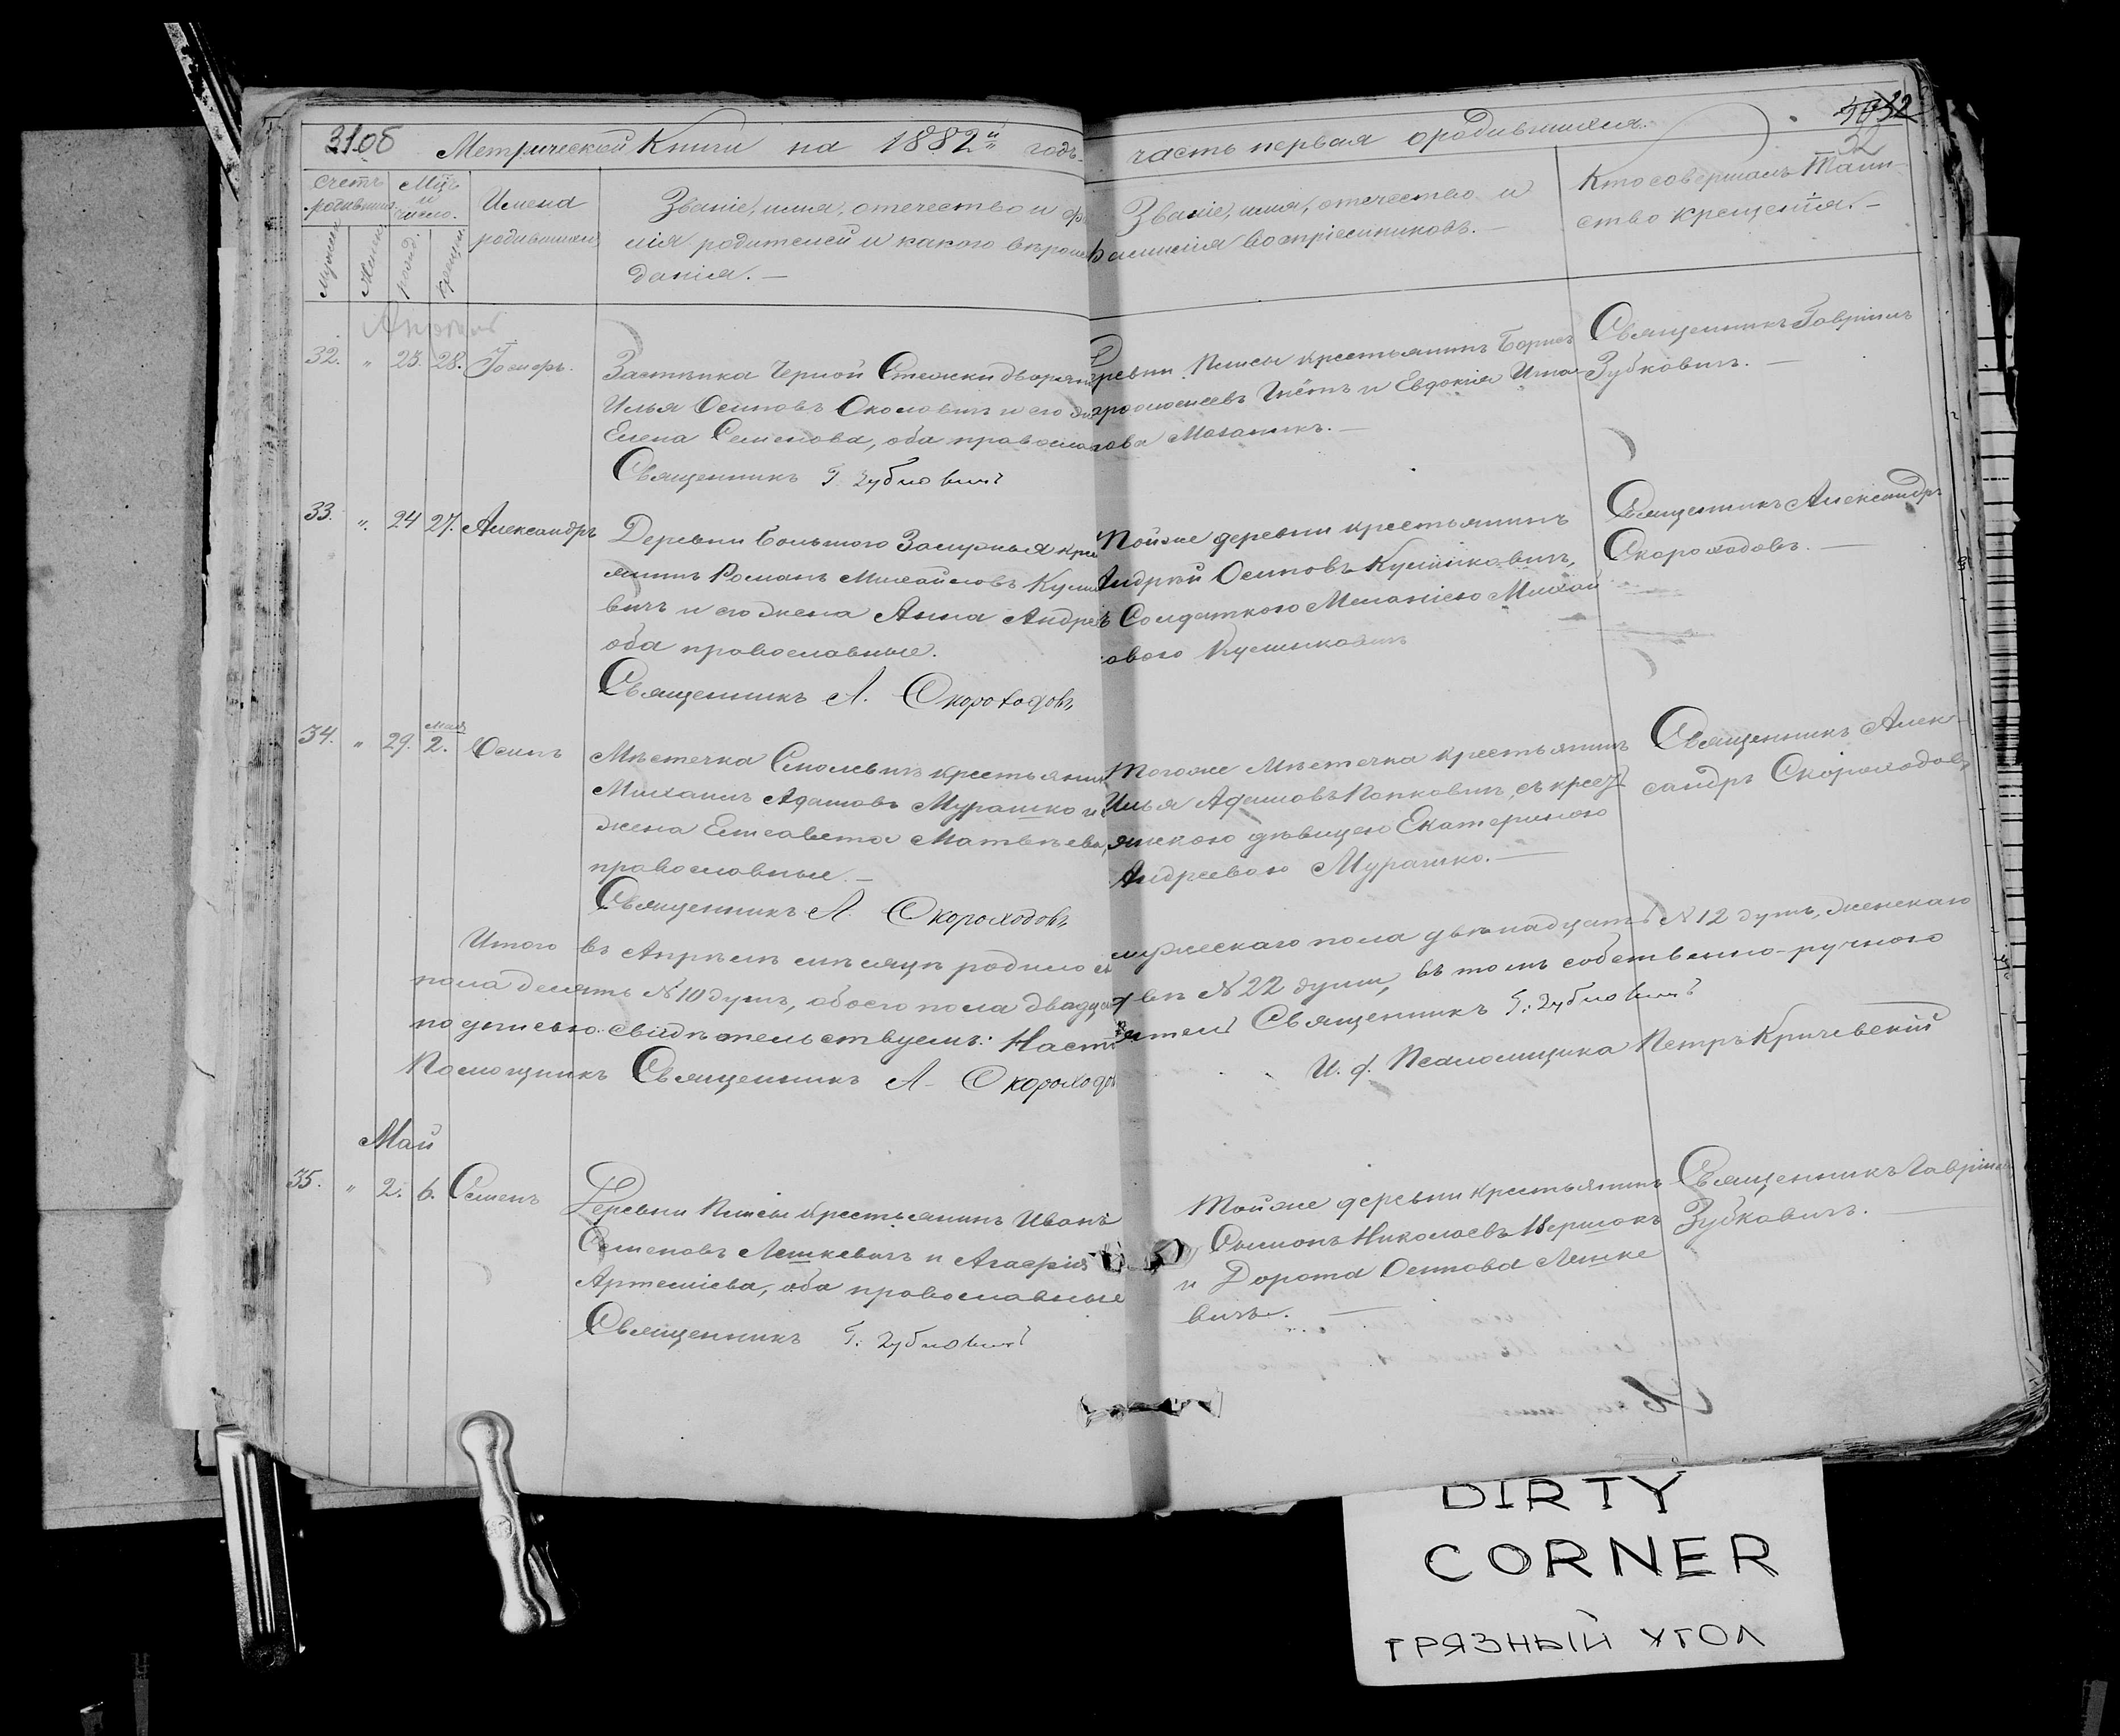 31об
Метрической Книги на 1882й годъ
часть первая о родившихся.
32
Счетъ родившихся
Мѣсяцъ и число.
Мужеск.
Женск.
рожд.
крещен.
Имена
родившихся
Званіе, имя, отечество и фа
милія родителей и какого вѣроиспо
данія. —
Званіе, имя, отечество и
фамилія воспріемниковъ. —
Кто совершалъ Таин-
ство крещенія. —
Апрѣль
32. " 25. 28. Іосифъ.
Застѣнка Черной Стежки дворянинъ
Илья Осиповъ Околовичъ и его
Елена Семенова, оба православ
Священникъ Г. Зубковичъ
Деревни Плисы крестьянинъ Борисъ
и Евдокія
Священникъ Гавріилъ
Зубковичъ. —
33. " 24 27. Александръ
Деревни Большого Залужья крес
янинъ Романъ Михайловъ
вичъ и его жена Анна Андре
оба православные.
Священникъ А. Скороходовъ
Той же деревни крестьянинъ
Андрей Осиповъ
съ Солдаткою Меланіею Михай
ловою
Священникъ Александръ
Скороходовъ. —
34. " 29. Мая 2. Осипъ
Мѣстечка Смолевичъ крестьянинъ
Михаилъ Адамовъ Мурашко и
жена Елисавета Матвѣева,
православные. —
Священникъ А. Скороходовъ
Того же Мѣстечка крестьянинъ
Илья Адамовъ Попковичъ, съ крест
янскою дѣвицею Екатериною
Андреевою Мурашко. —
Священникъ Алек-
сандръ Скороходовъ
Итого въ Апрѣлѣ мѣсяцѣ родилось мужескаго пола двѣнадцать №12 душъ, женскаго
пола десять №10 душъ, обоего пола двадцать двѣ №22 души, въ томъ собственно-ручною
подписью свидѣтельствуемъ: Настоятель Священникъ Г. Зубковичъ
Помощникъ Священникъ А. Скороходовъ
И. д. Псаломщика Петръ Кричевскій
Май
35. " 2. 6. Семенъ
Деревни Плисы крестьянинъ Иванъ
Семеновъ Лешкевичъ и Агафія
Артеміева, оба православные
Священникъ Г. Зубковичъ
Той же деревни крестьянинъ
Николаевъ
и Дорота Осипова Лешке
вичъ. —
Священникъ Гавріилъ
Зубковичъ. —
DIRTY
CORNER
ГРЯЗНЫЙ УГОЛ